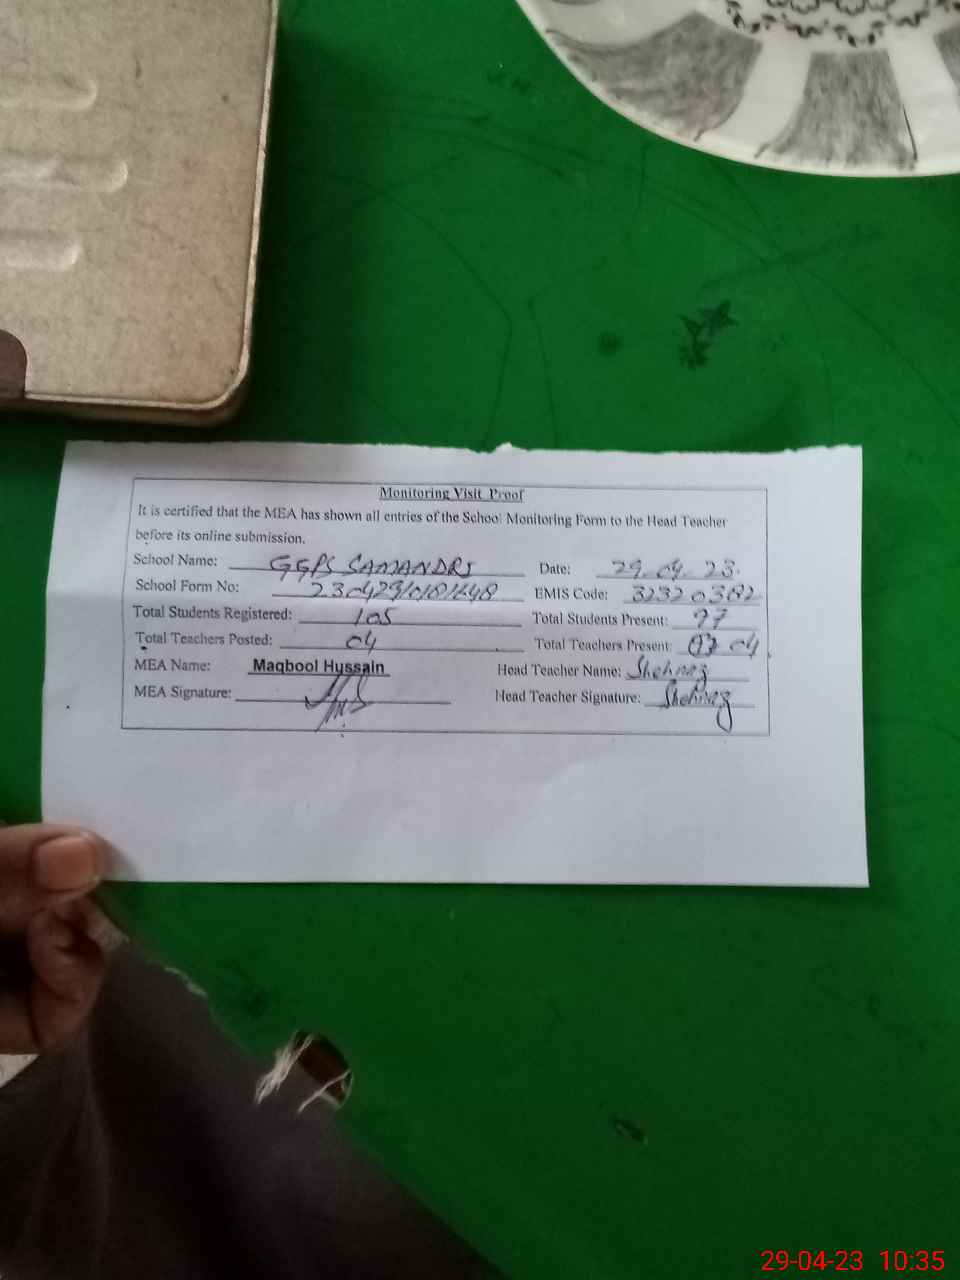 Monitoring Visit Proof
It is certified that the MEA has shown all entries of the School Monitoring Form to the Head Teacher
before its online submission.
School Name: GGPS SAMANDRI Date: 29-04-23.
School Form No: EMIS Code:
Total Students Registered: 105 Total Students Present: 97
Total Teachers Posted: 04 Total Teachers Present: 04
MEA Name: Maqbool Hussain Head Teacher Name: Shehnaz
MEA Signature: Head Teacher Signature: Shehnaz
29-04-23 10:35